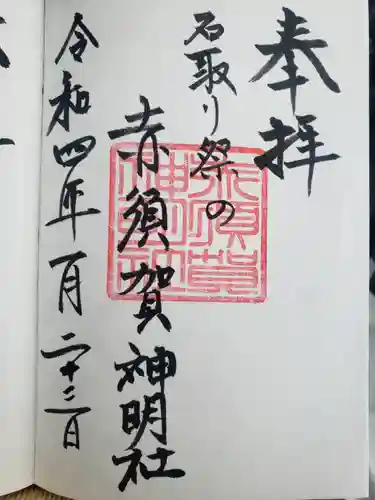 奉拝
石取り祭の
赤須賀神明社
令和四年一月二十三日
赤須賀神明社